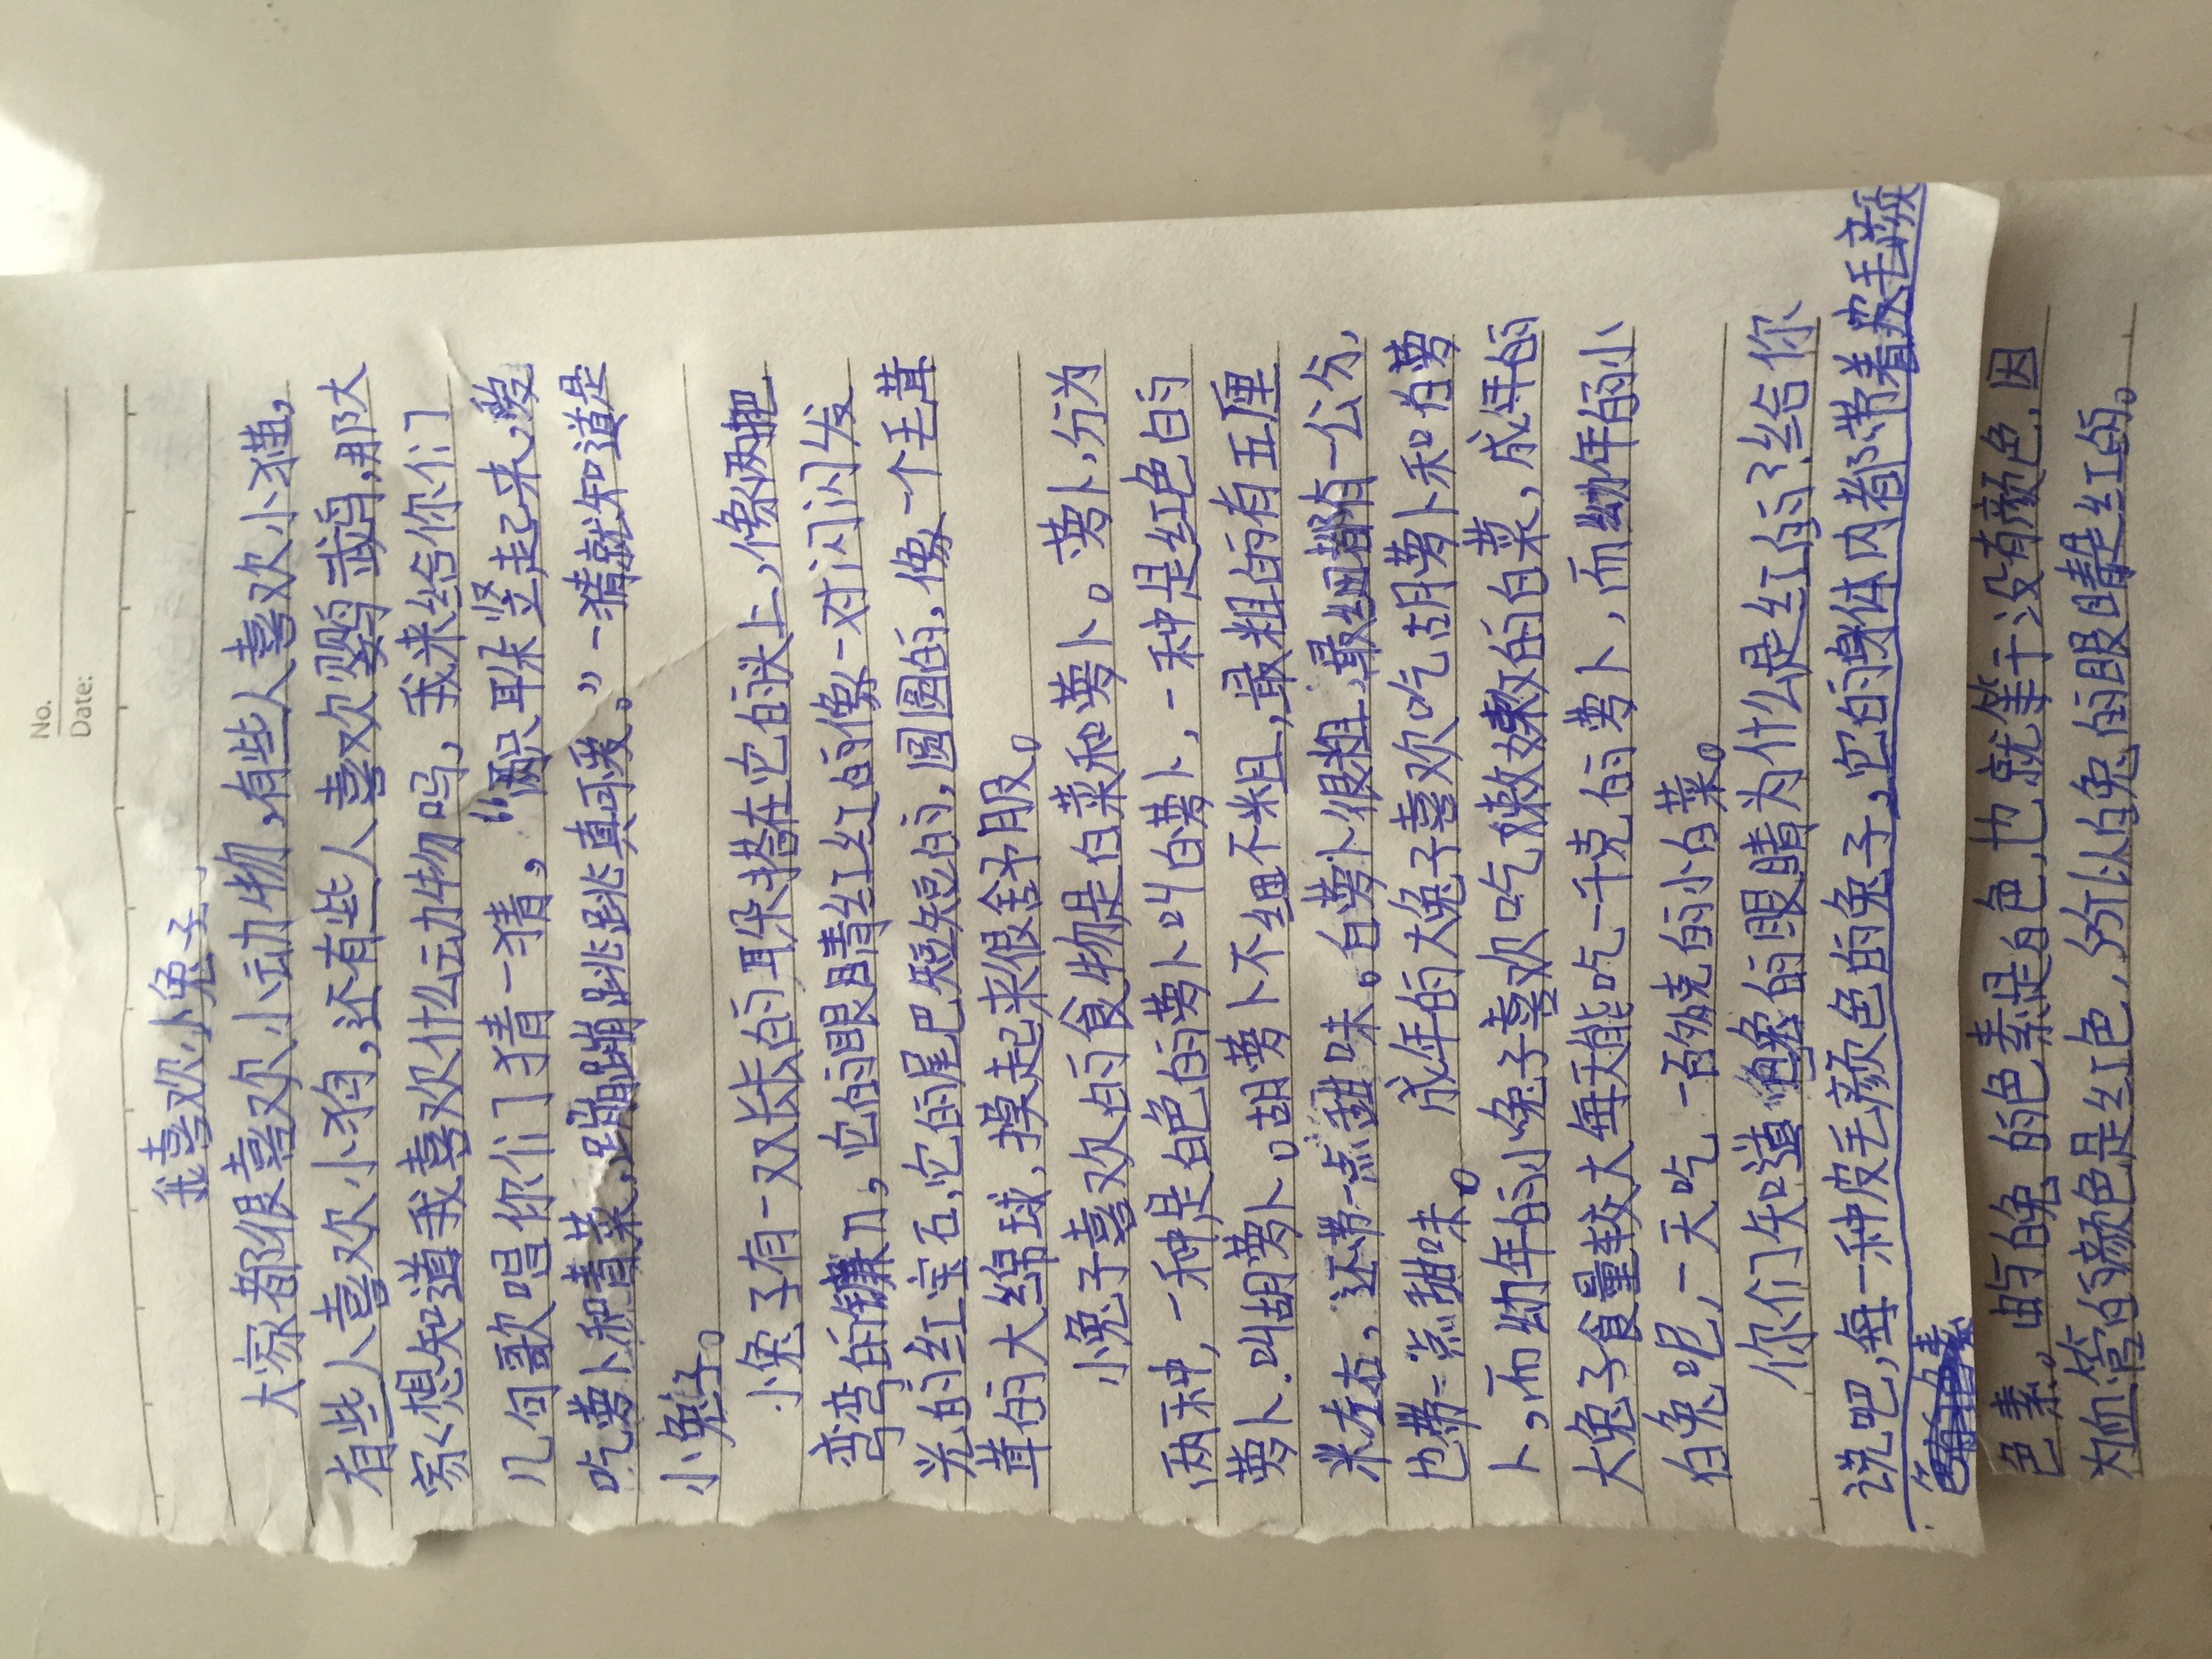 No.
Date:
我喜欢小兔子
大家都很喜欢小运动物,有些人喜欢小猫,
有些人喜欢小狗,还有些人喜欢鹦鹉,那大
家想知道我喜欢什么动物吗,我来给你们
几句歌唱你们猜一猜,“两只耳朵竖起来,爱
吃萝卜和青菜,蹦蹦跳跳真可爱。”一猜就知道是
小兔子。
小兔子有一双长长的耳朵搭在它的头上,像两把
弯弯的镰刀,它的眼睛红红的像一对闪闪发
光的红宝石,它的尾巴短短的,圆圆的,像一个毛茸
茸的大绵球,摸起来很舒服。
小兔子喜欢的食物是白菜和萝卜。萝卜,分为
两种,一种是白色的萝卜叫白萝卜,一种是红色的
萝卜.叫胡萝卜。胡萝卜不细不粗,最粗的有五厘
米左右,还带一点甜味。白萝卜很粗,最细都有一公分,
也带一点甜味。 成年的大兔子喜欢吃胡萝卜和白萝
卜,而幼年的小兔子喜欢吃嫩嫩的白菜,成年的
大兔子食量较大每天能吃一千克的萝卜,而幼年的小
白兔呢,一天吃一百克的小白菜。
你们知道白兔的眼睛为什么是红的了给你
说吧,每一种皮毛颜色的兔子,它的身体内都带着皮毛颜
色素。由与白兔的色素是白色,也就等于没有颜色,因
为血管的颜色是红色,所以白兔的眼睛是红的。